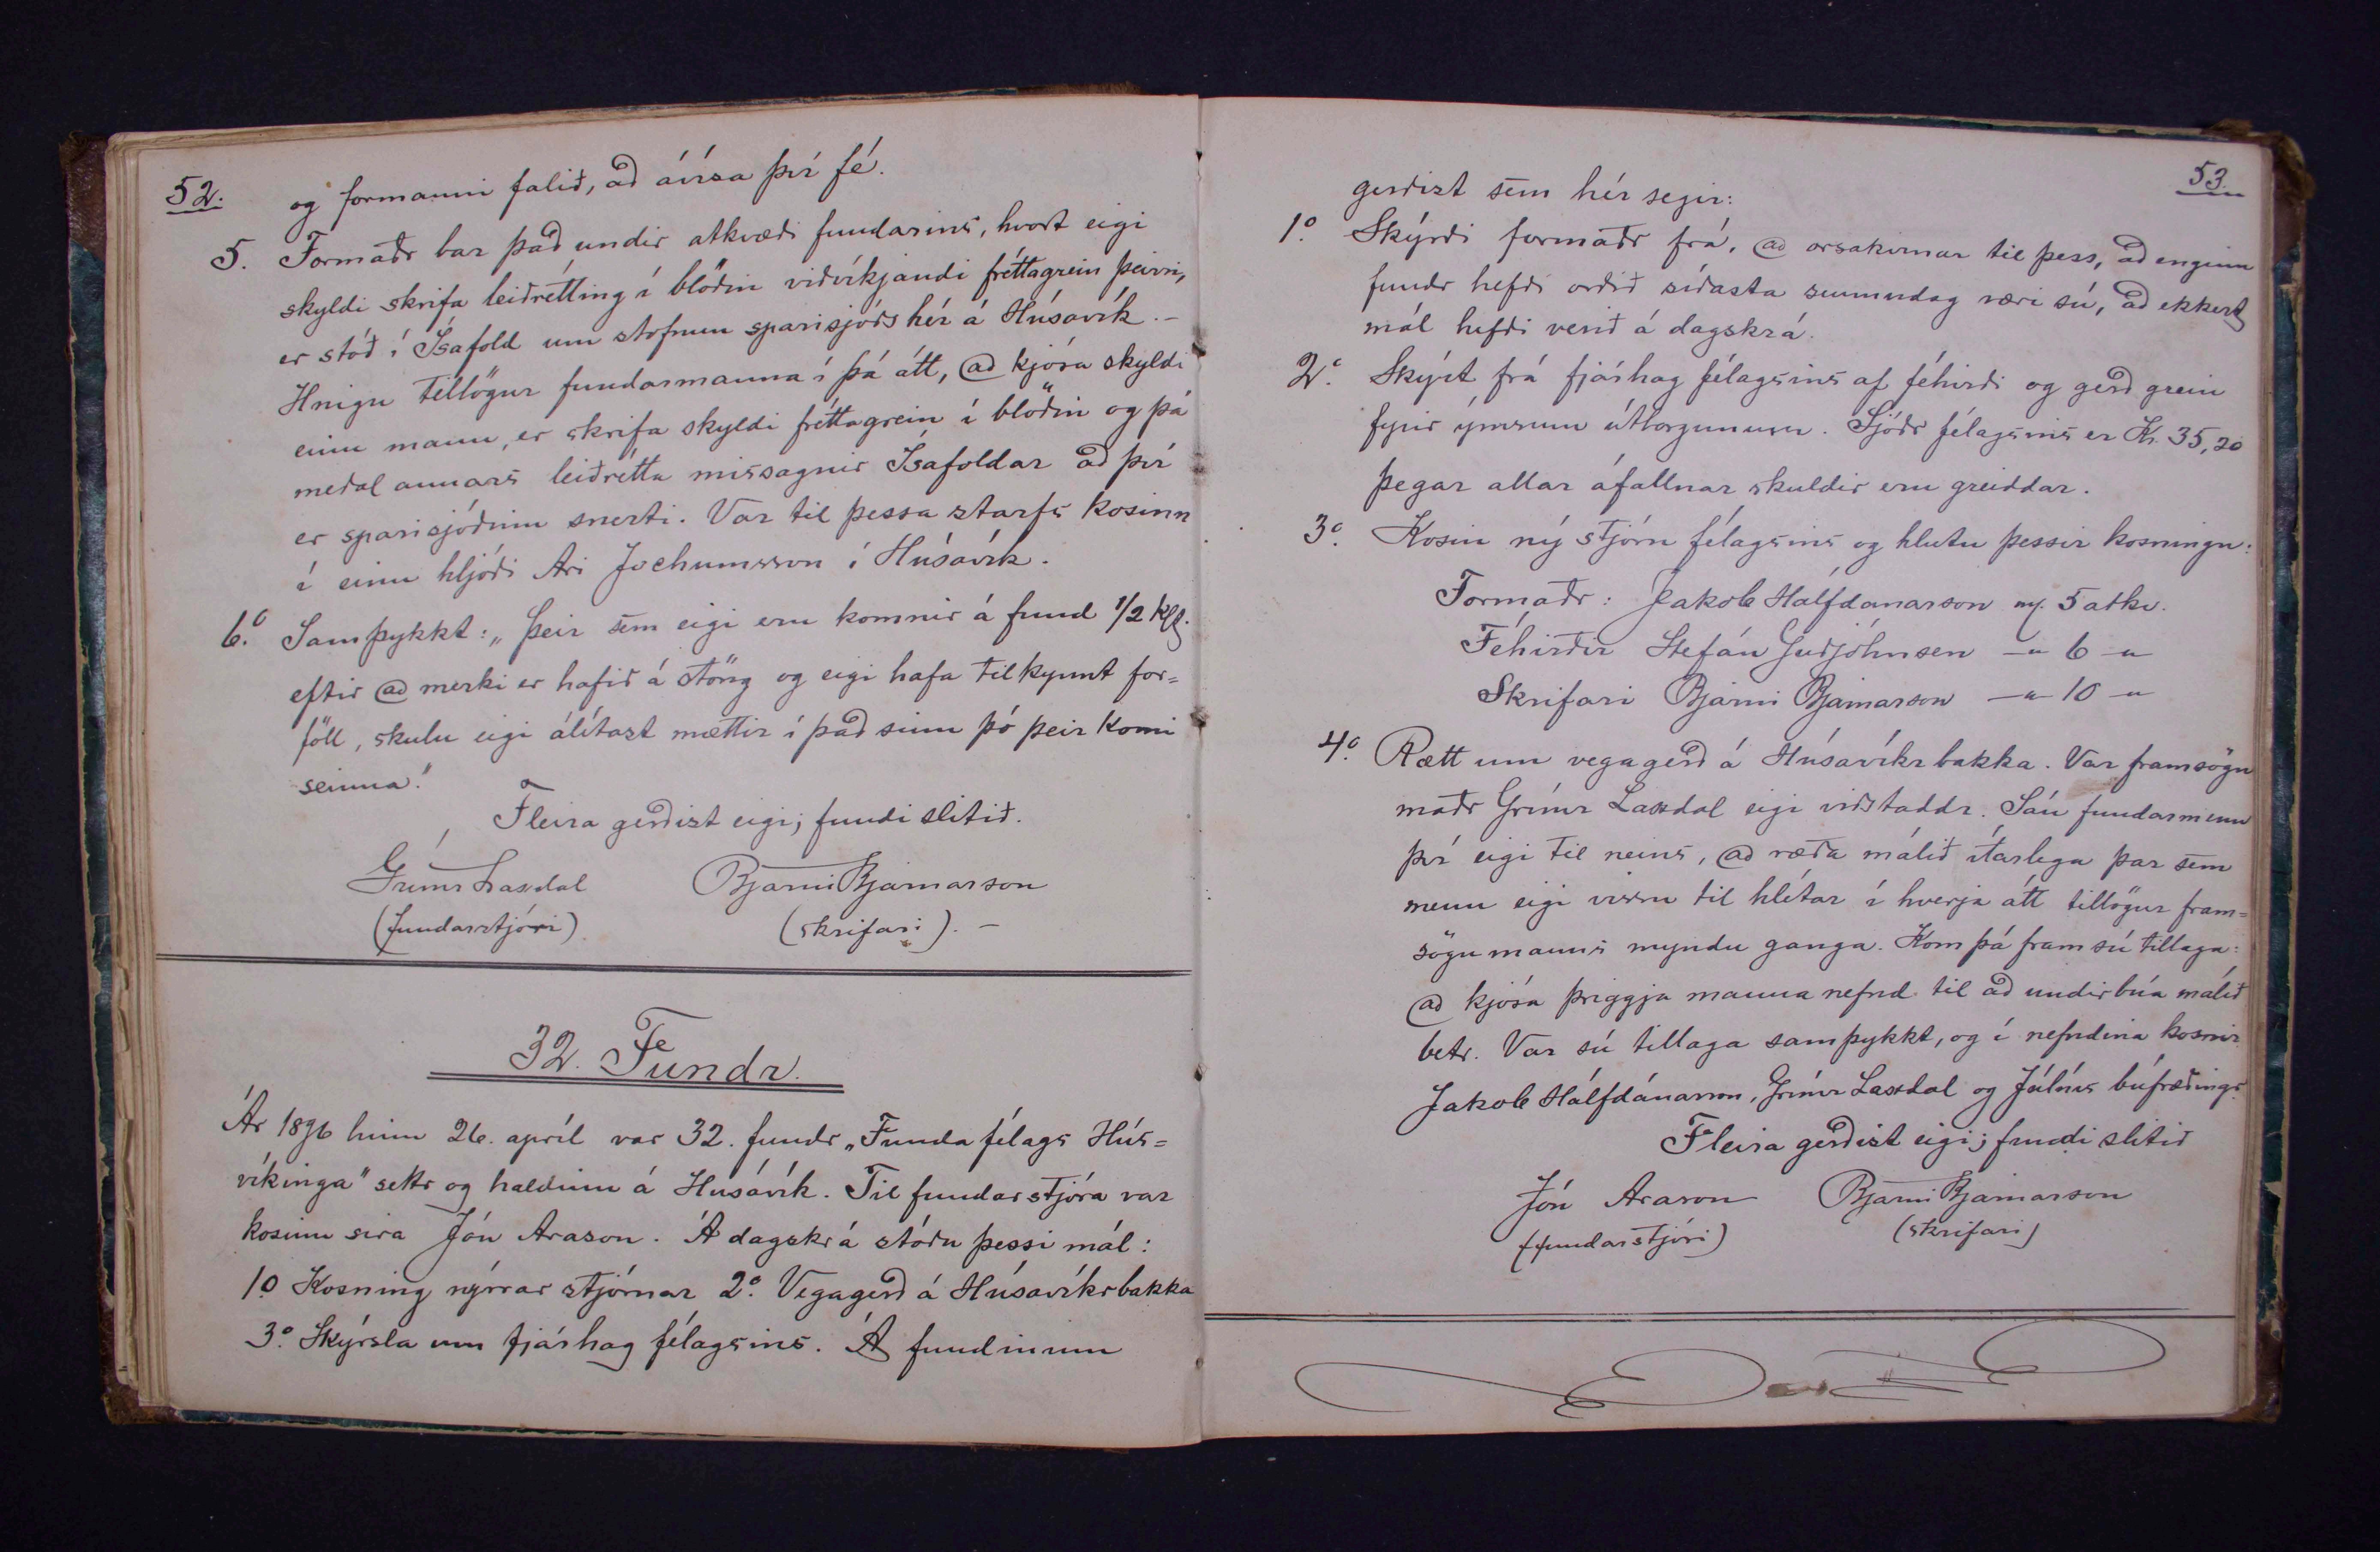 52.
og formanni falið, að ávísa því fé.
5. Formaðr bar það undir atkvæði fundarins, hvort eigi
skyldi skrifa leiðrétting í blöðin viðvíkjandi fréttagrein þeirri,
er stóð í Ísafold um stofnun sparisjóðs hér á Húsavík. -
Hnigu tillögur fundarmanna í þá átt, að kjósa skyldi
einn mann, er skrifa skyldi fréttagrein í blöðin og þá
meðal annars leiðrétta missagnir Ísafoldar að því
er sparisjóðinn snerti. Var til þessa starfs kosinn
í einu hljóði Ari Jochumsson í Húsavík.
6.o Samþykkt: „Þeir sem eigi eru komnir á fund 1/2 kl.
eftir að merki er hafið á stöng og eigi hafa tilkynnt for=
föll, skulu eigi álítast mættir í það sinn þó þeir komi
seinna."
Fleira gerðizt eigi; fundi slitið.
Grímr Laxdal Bjarni Bjarnarson
(fundarstjóri) (skrifari). -
32. Fundr.
Ár 1896 hinn 26. apríl var 32. fundr „Funda félags Hús=
víkinga" settr og haldinn á Húsavík. Til fundarstjóra var
kosinn síra Jón Arason. Á dagskrá stóðu þessi mál:
1.o Kosning nýrrar stjórnar 2.o Vegagerð á Húsavíkrbakka
3.o Skýrsla um fjárhag félagsins. Á fundinum
53.
gerðizt sem hér segir:
1.o Skýrði formaðr frá, að orsakirnar til þess, að enginn
fundr hefði orðið síðasta sunnudag væri sú, að ekkert
mál hefði verið á dagskrá.
2.o Skýrt frá fjárhag félagsins af féhirði og gerð grein
fyrir ýmsum útborgunum. Sjóðr félagsins er Kr. 35,20
þegar allar áfallnar skuldir eru greiddar.
3.o Kosin ný stjórn félagsins og hlutu þessir kosningu:
Formaðr: Jakob Hálfdanarson m/. 5 atkv.
Féhirðir Stefán Guðjóhnsen —„ 6 —„
Skrifari Bjarni Bjarnarson —„ 10 —„
4.o Rætt um vegagerð á Húsavíkrbakka. Var framsögu
maðr Grímr Laxdal eigi viðstaddr. Sáu fundarmenn
því eigi til neins, að ræða málið ítarlega þar sem
menn eigi vissu til hlítar í hverja átt tillögur fram=
sögumanns myndu ganga. Kom þá fram sú tillaga:
að kjósa þriggja manna nefnd til að undirbúa málið
betr. Var sú tillaga samþykkt, og í nefndina kosnir
Jakob Hálfdánarson, Grímr Laxdal og Júlíus búfræðingr
Fleira gerðizt eigi; fundi slitið
Jón Arason Bjarni Bjarnarson
(fundarstjóri) (skrifari)